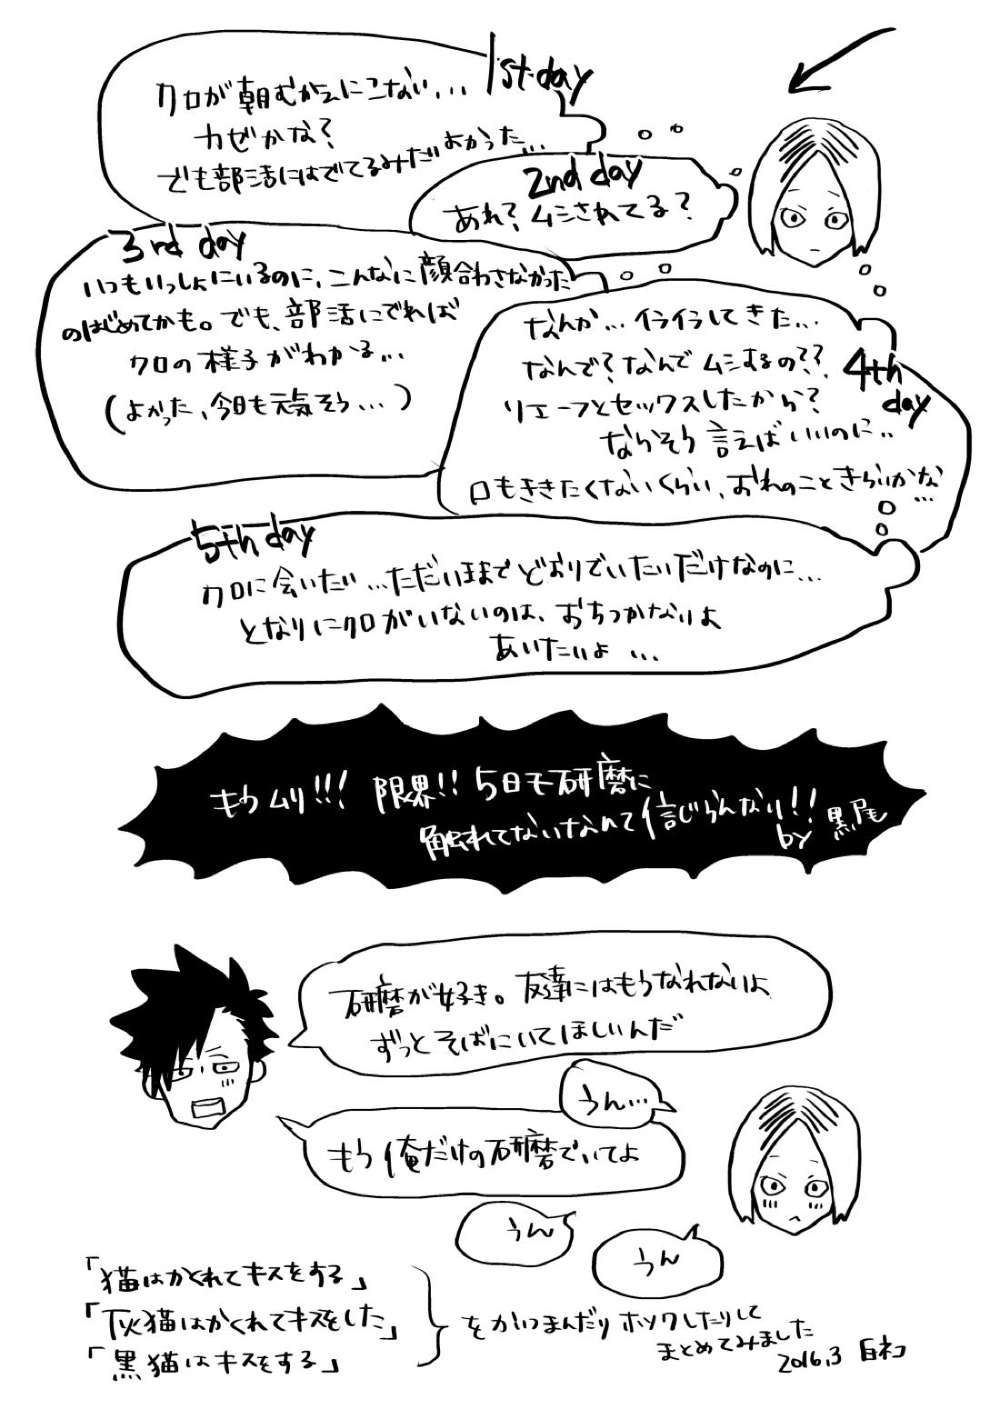 1st day
クロが朝むかえにこない...
カゼかな?
でも部活にはでてるみたい よかった...
2nd day
あれ? ムシされてる?
3rd day
いつもいっしょにいるのに、こんなに顔合わさなかった
のはじめてかも。でも、部活にでれば
クロの様子がわかる...
(よかった、今日も元気そう...)
4th day
なんか...イライラしてきた...
なんで?なんでムシするの??
リエーフとセックスしたから?
ならそう言えばいいのに..
口もききたくないくらい、おれのこときらいかな
...
5th day
クロに会いたい...ただいままでどおりでいたいだけなのに...
となりにクロがいないのは、おちつかないよ
あいたいよ...
もうムリ!!! 限界!! 5日も研磨に
触れてないなんて信じらんない!!
by 黒尾
研磨が好き。友達にはもうなれないよ
ずっとそばにいてほしいんだ
うん...
もう俺だけの研磨でいてよ
うん
うん
「猫はかくれてキスをする」
「灰猫はかくれてキスをした」
「黒猫はキスをする」
をかいつまんだりボツワしたりして
まとめてみました
2016.3 白ネコ